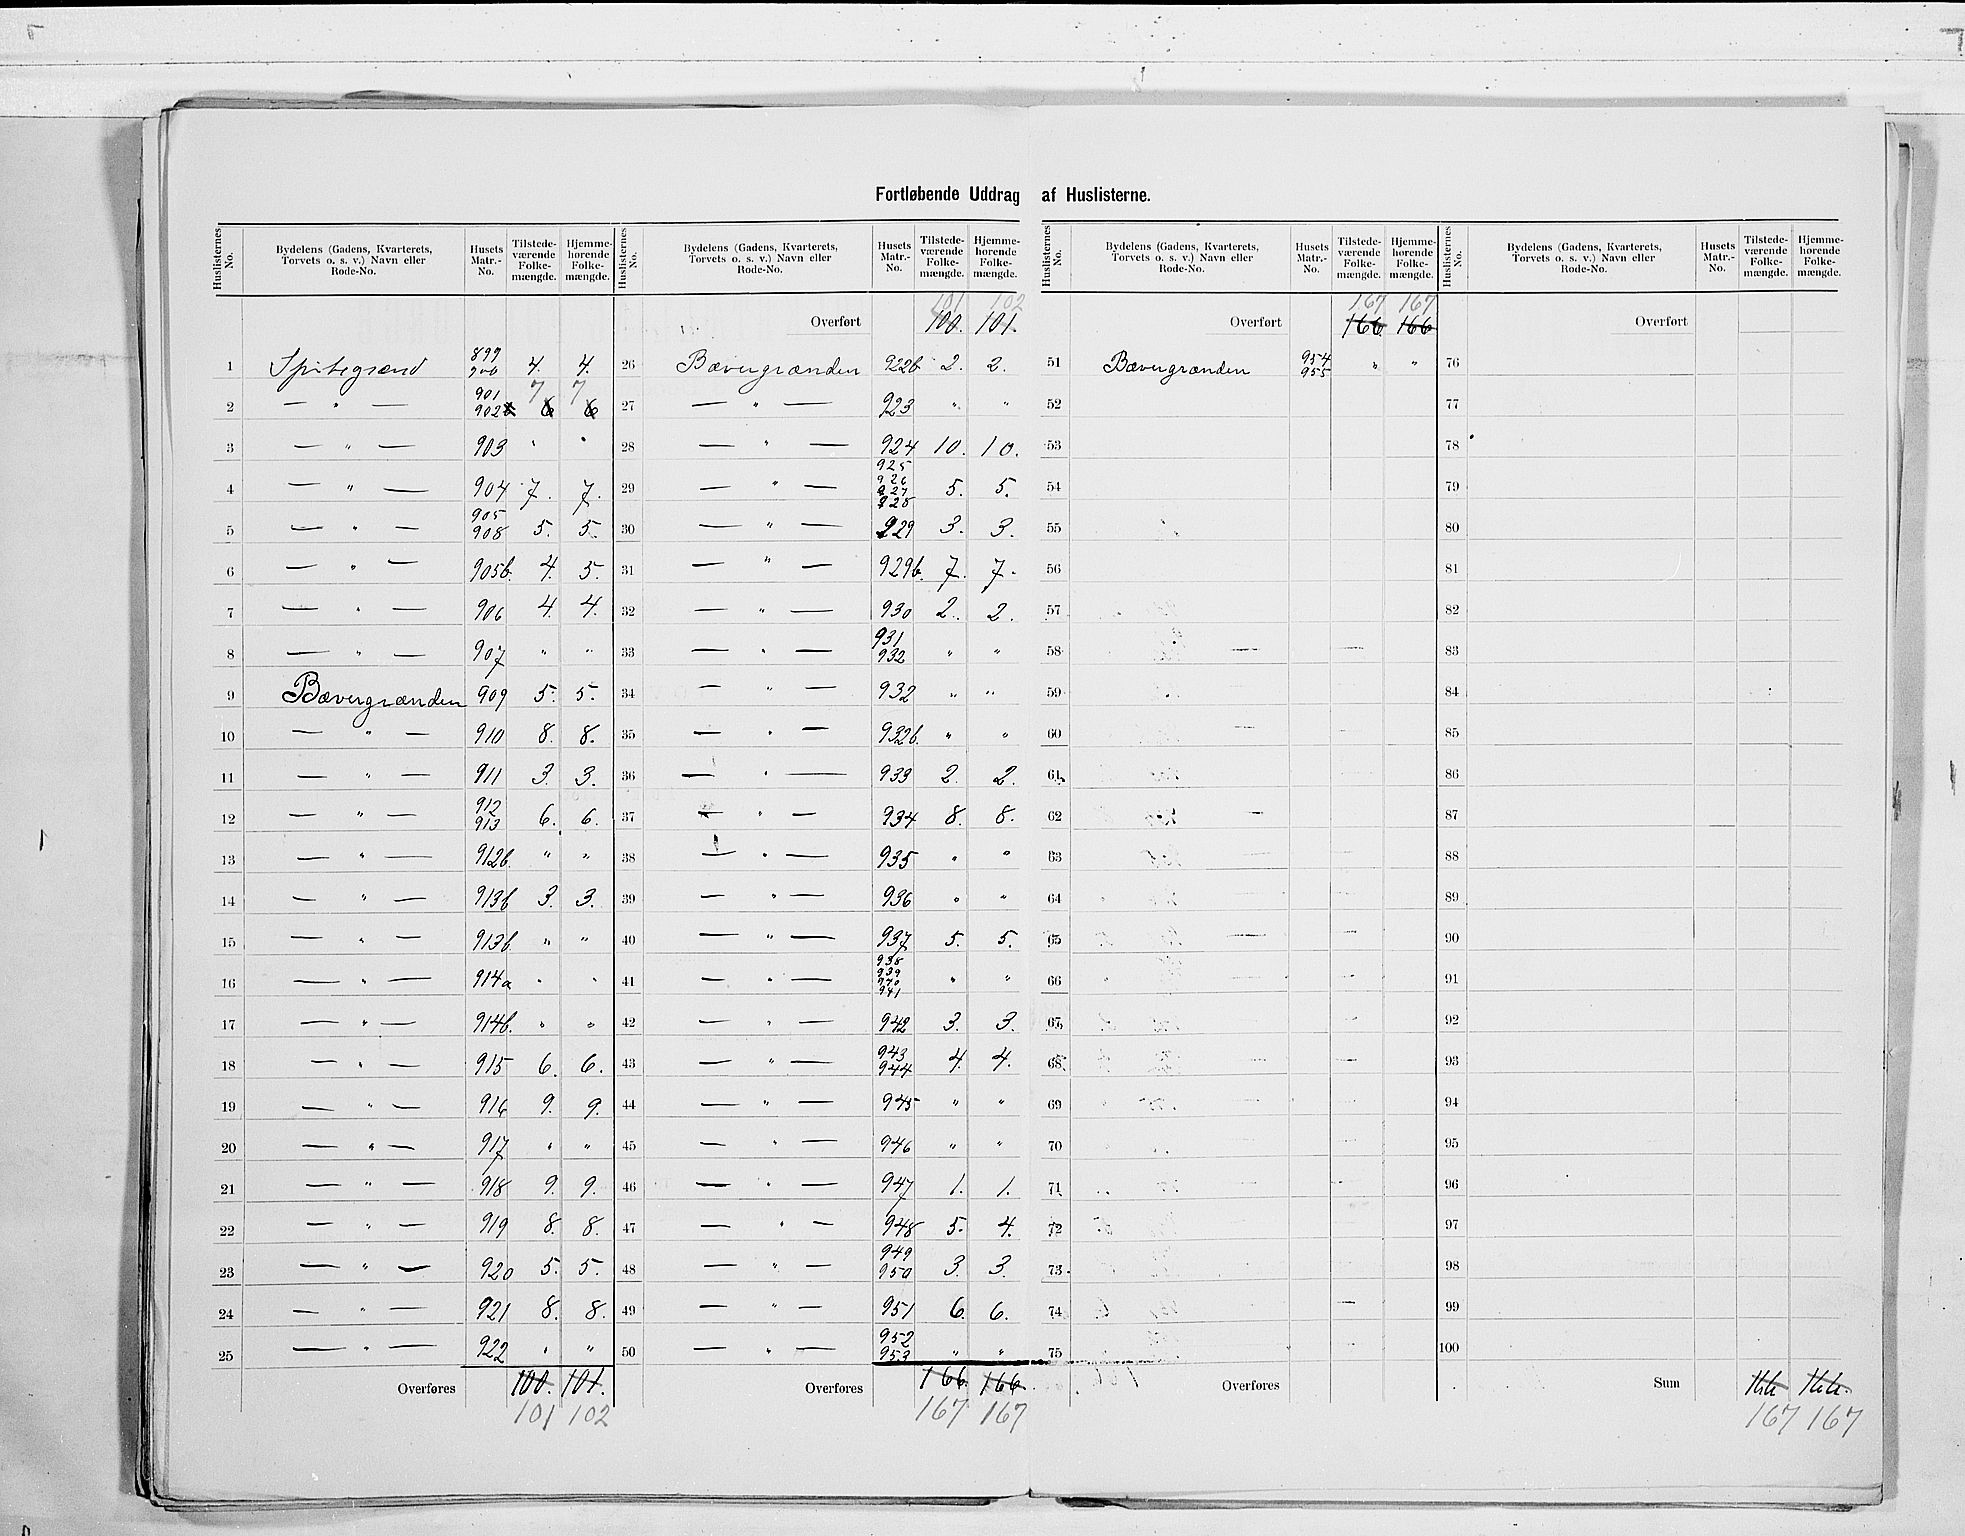 Fortløbende Uddrag af Huslisterne.
Huslisternes No. Bydelens (Gadens, Kvarterets, Torvets o. s. v.) Navn eller Rode-No. Husets Matr.-No. Tilstede-værende Folke-mængde. Hjemme-hørende Folke-mængde.
1 899 900 4. 4.
2 — " — 901 902 6 7 6 7
3 — " — 903 " "
4 — " — 904 7. 7.
5 — " — 905 908 5. 5.
6 — " — 905b. 4. 5.
7 — " — 906 4. 4.
8 — " — 907 " "
9 Bævergrænden 909 5. 5.
10 — " — 910 8. 8.
11 — " — 911 3. 3.
12 — " — 912 913 6. 6.
13 — " — 912b. " "
14 — " — 913b 3. 3.
15 — " — 913b. " "
16 — " — 914a " "
17 — " — 914b. " "
18 — " — 915 6. 6.
19 — " — 916 9. 9.
20 — " — 917 " "
21 — " — 918 9. 9.
22 — " — 919 8. 8.
23 — " — 920 5. 5.
24 — " — 921 8. 8.
25 — " — 922 " "
Overføres 100. 101.
101 102
Huslisternes No. Bydelens (Gadens, Kvarterets, Torvets o. s. v.) Navn eller Rode-No. Husets Matr.-No. Tilstede-værende Folke-mængde. Hjemme-hørende Folke-mængde.
101 102
Overført 100. 101.
26 Bævergrænden 922b. 2. 2.
27 — " — 923 " "
28 — " — 924 10. 10.
29 — " — 925 926 927 928 5. 5.
30 — " — 929 3. 3.
31 — " — 929b. 7. 7.
32 — " — 930 2. 2.
33 — " — 931 932 " "
34 — " — 932 " "
35 — " — 932b. " "
36 — " — 933 2. 2.
37 — " — 934 8. 8.
38 — " — 935 " "
39 — " — 936 " "
40 — " — 937 5. 5.
41 — " — 938 939 940 941 " "
42 — " — 942 3. 3.
43 — " — 943 944 4. 4.
44 — " — 945 " "
45 — " — 946 " "
46 — " — 947 1. 1.
47 — " — 948 5. 4.
48 — " — 949 950 3. 3.
49 — " — 951 6. 6.
50 — " — 952 953 " "
Overføres 166. 166.
167 167
Huslisternes No. Bydelens (Gadens, Kvarterets, Torvets o. s. v.) Navn eller Rode-No. Husets Matr.-No. Tilstede-værende Folke-mængde. Hjemme-hørende Folke-mængde.
167 167
Overført 166 166
51 Bævergrænden 954 955 " "
52
53
54
55
56
57
58
59
60
61
62
63
64
65
66
67
68
69
70
71
72
73
74
75
Overføres
Huslisternes No. Bydelens (Gadens, Kvarterets, Torvets o. s. v.) Navn eller Rode-No. Husets Matr.-No. Tilstede-værende Folke-mængde. Hjemme-hørende Folke-mængde.
Overført
76
77
78
79
80
81
82
83
84
85
86
87
88
89
90
91
92
93
94
95
96
97
98
99
100
Sum 166 166.
167 167